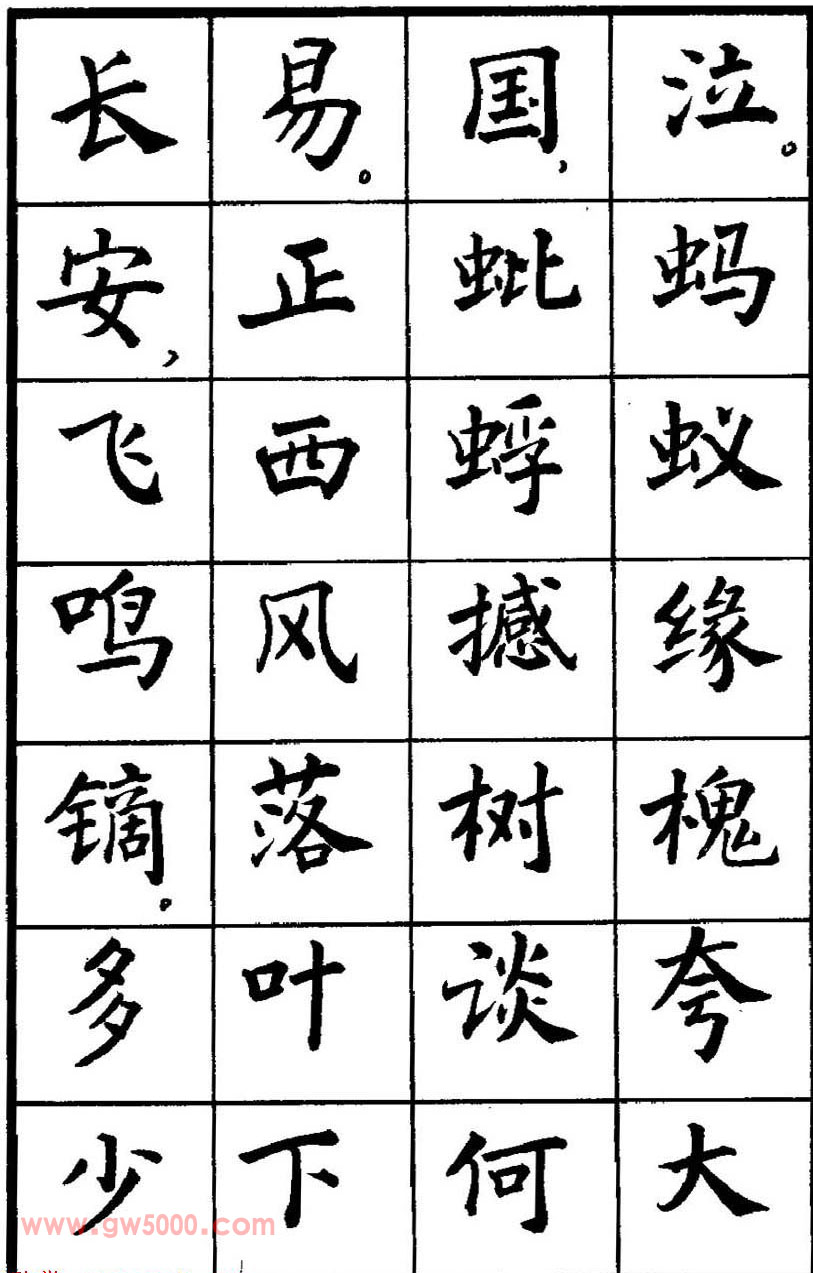 泣。蚂蚁缘槐夸大
国，蚍蜉撼树谈何
易。正西风落叶下
长安，飞鸣镝。多少
www.gw5000.com